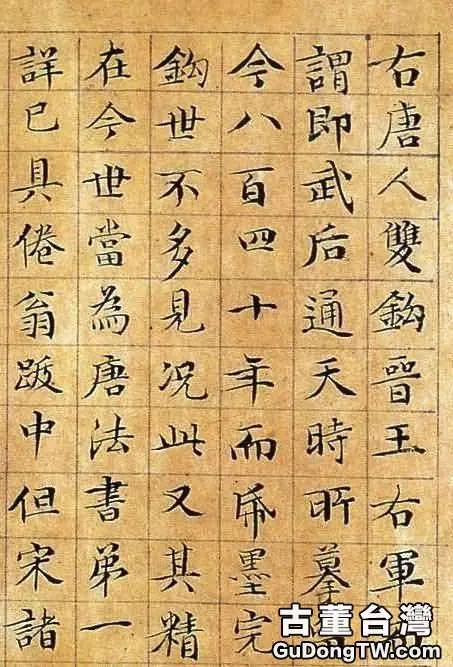 右唐人雙鈎晉王右軍
謂即武后通天時所摹
今八百四十年而帋墨完
鈎世不多見况此又其精
在今世當為唐法書弟一
詳已具倦翁跋中但宋諸
古董台灣
GuDongTW.com